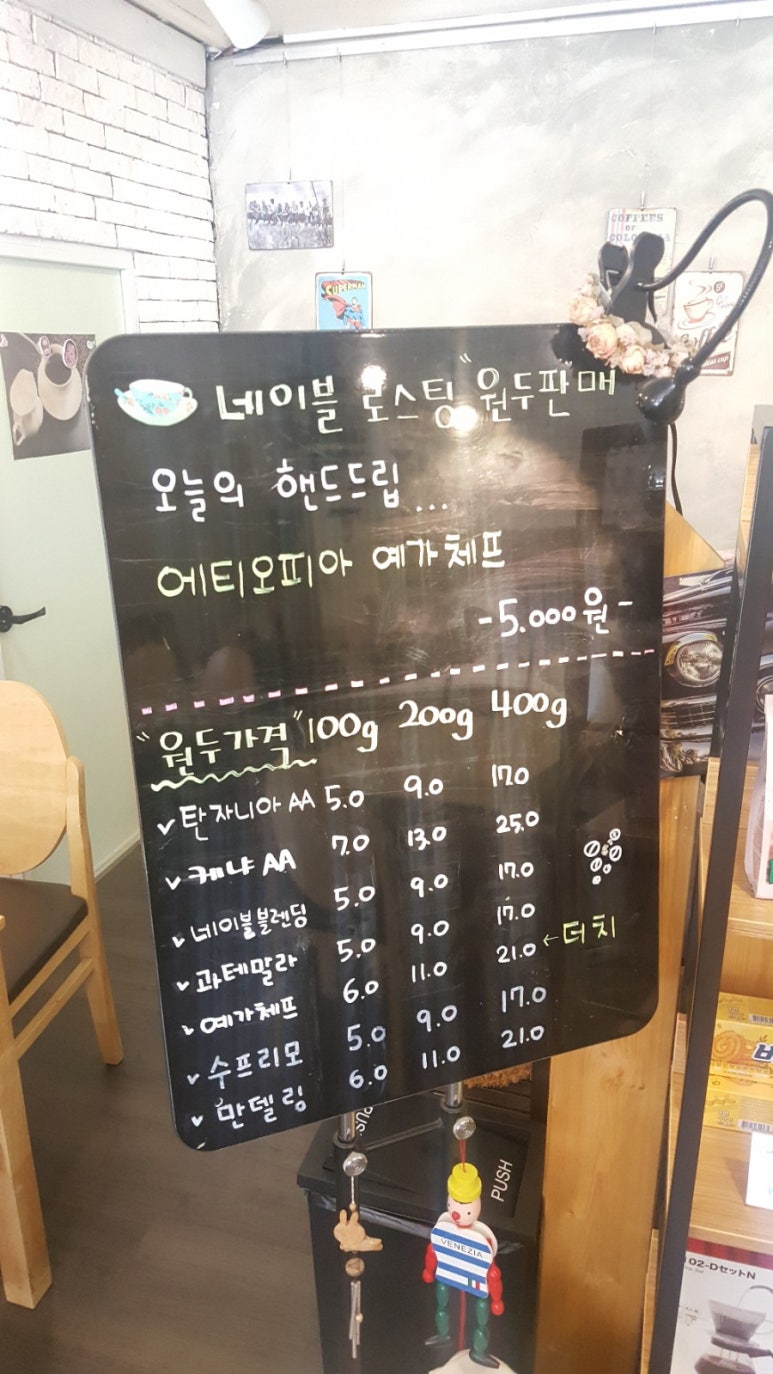 COFFEES
OF
SUPERMAN
네이블 로스팅 "원두판매
오늘의 핸드드립...
에티오피아 예가체프
-5.000원-
"원두가격" 100g 200g 400g
✓탄자니아 AA 5.0 9.0 17.0
✓케냐 AA 7.0 13.0 25.0
✓네이블블렌딩 5.0 9.0 17.0
✓과테말라 5.0 9.0 17.0
✓예가체프 6.0 11.0 21.0 ←더치
✓수프리모 5.0 9.0 17.0
✓만델링 6.0 11.0 21.0
PUSH
VENEZIA
02-DセットN